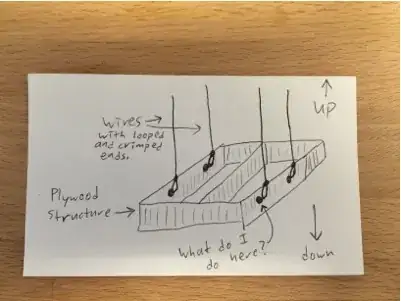 UP
wires
with looped
and crimped
ends.
Plywood
Structure
What do I
do here?
down